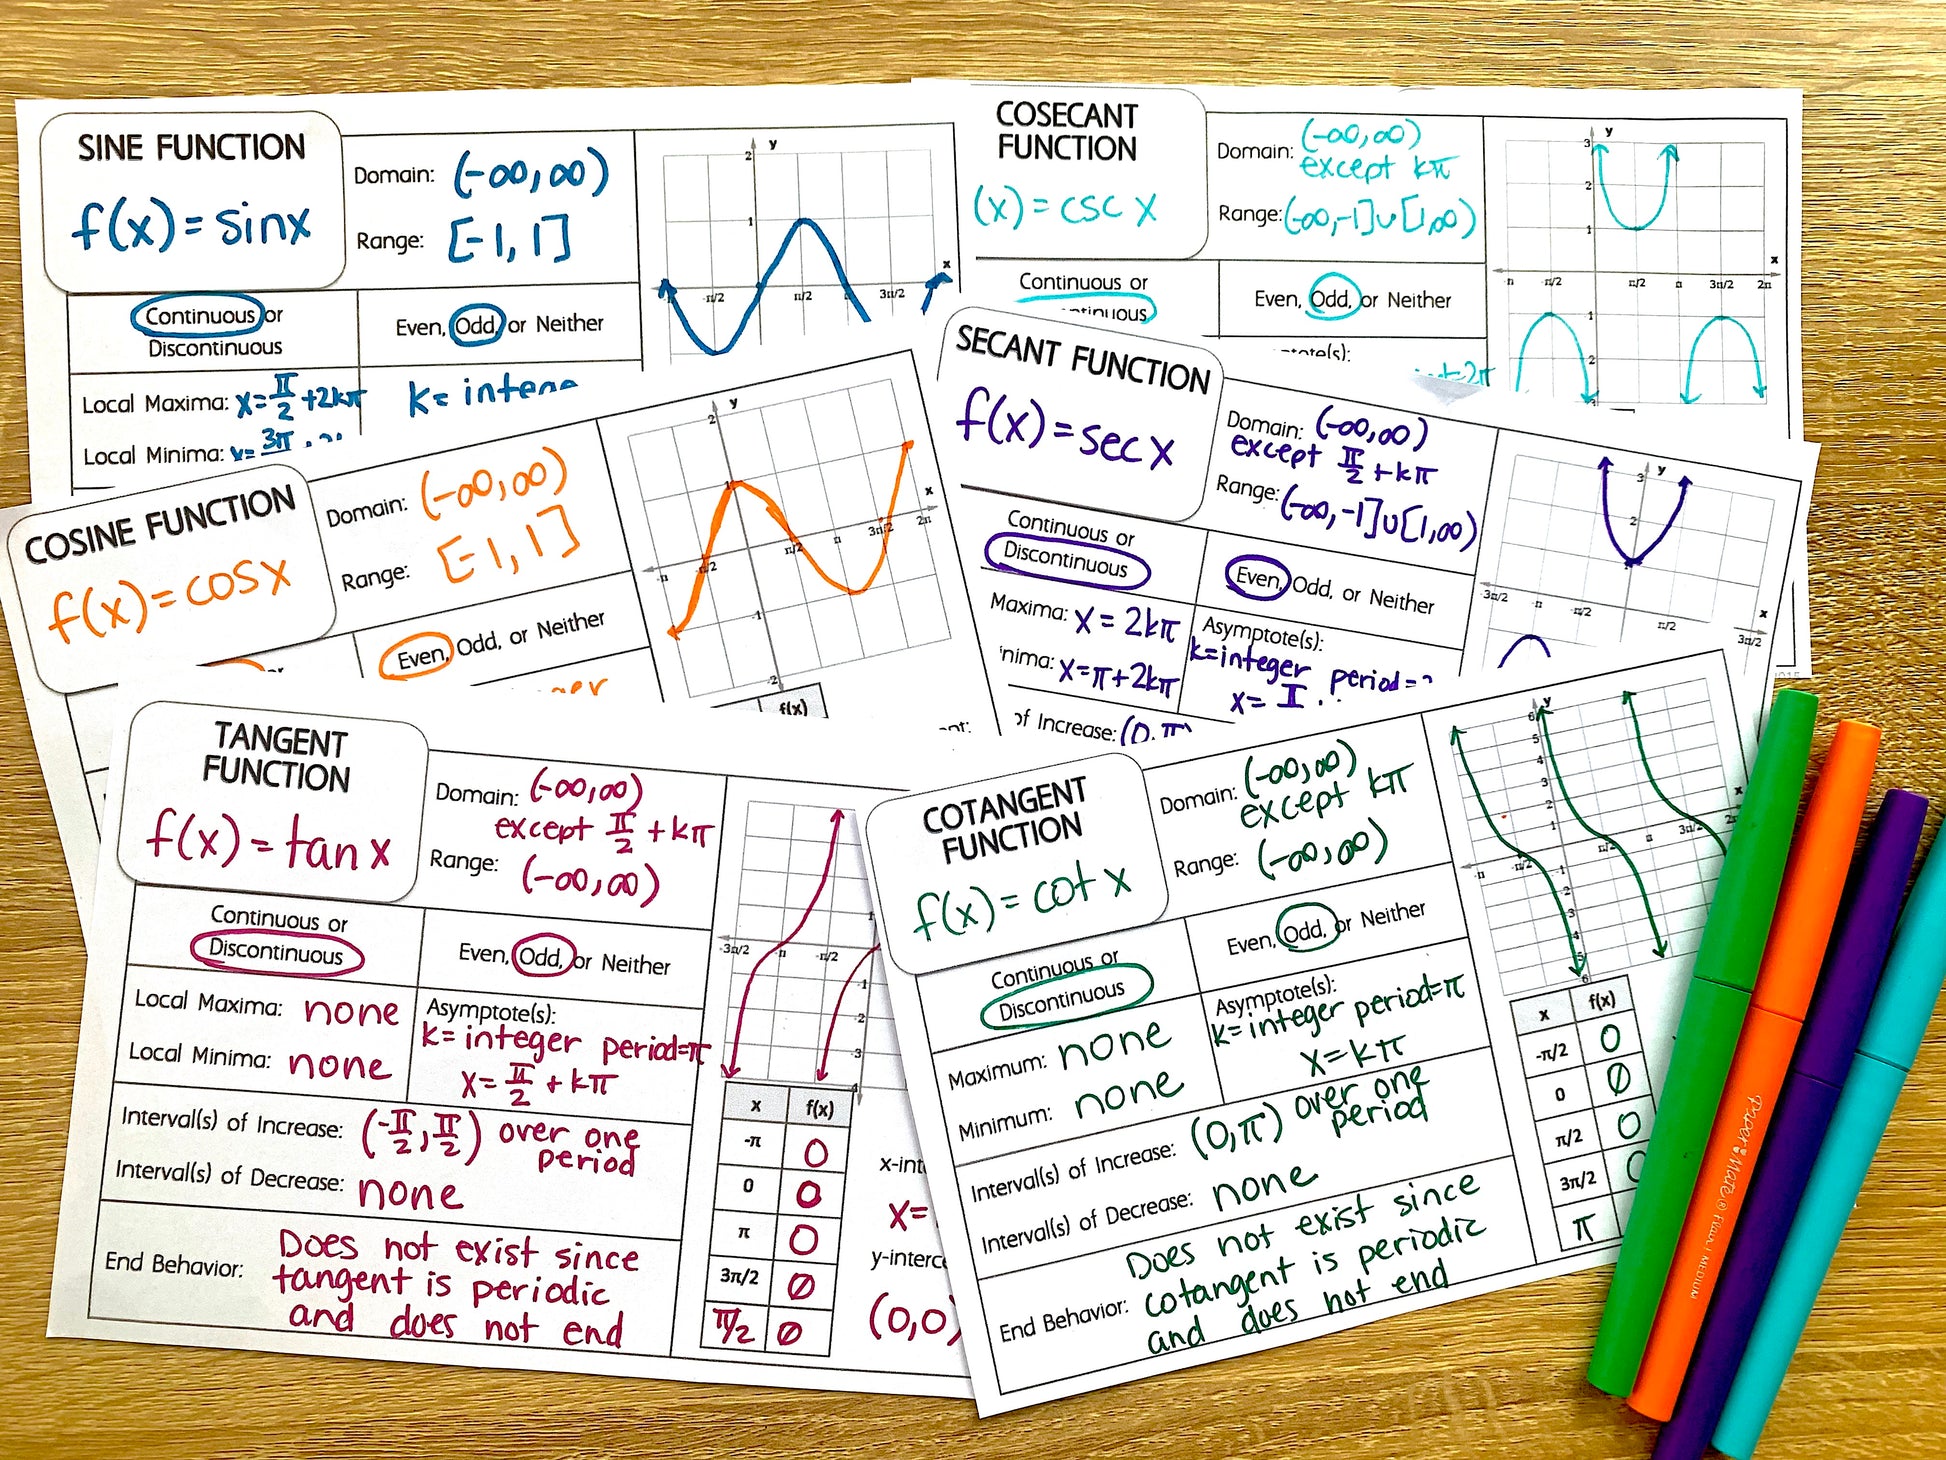 SINE FUNCTION
f(x)=sinx
Domain: (-∞,∞)
Range: [-1,1]
Continuous or
Discontinuous
Even, Odd, or Neither
Local Maxima: x=π/2+2kπ
k=
Local Minima: x=3π
y
2
1
x
-π/2
π/2
π
3π/2
COSECANT
FUNCTION
(x)=csc x
Domain: (-∞,∞)
except kπ
Range: (-∞,-1]∪[1,∞)
Continuous or
Even, Odd, or Neither
y
3
2
1
x
-π
-π/2
π/2
π
3π/2
2π
1
2
3
COSINE FUNCTION
f(x)=cosx
Domain: (-∞,∞)
Range: [-1,1]
Even, Odd, or Neither
y
2
1
x
-π
-π/2
π/2
π
3π/2
2π
-1
-2
f(x)
SECANT FUNCTION
f(x)=secx
Domain: (-∞,∞)
except π/2+kπ
Range: (-∞,-1]∪[1,∞)
Continuous or
Discontinuous
Even, Odd, or Neither
Maxima: x=2kπ
Asymptote(s):
k=integer period=
x=π+2kπ
of Increase: (0,π
y
3
2
1
x
-3π/2
-π
-π/2
π/2
3π/2
TANGENT
FUNCTION
f(x)=tanx
Domain: (-∞,∞)
except π/2+kπ
Range: (-∞,∞)
Continuous or
Discontinuous
Even, Odd, or Neither
Local Maxima: none
Local Minima: none
Asymptote(s):
k=integer period=π
x=π/2+kπ
Interval(s) of Increase: (-π/2,π/2) over one
period
Interval(s) of Decrease: none
End Behavior: Does not exist since
tangent is periodic
and does not end
-3π/2
-π
-π/2
1
-1
-2
-3
4
x f(x)
-π 0
0 0
π 0
3π/2 Ø
π/2 Ø
x=
(0,0)
COTANGENT
FUNCTION
f(x)=cot x
Domain: (-∞,∞)
except kπ
Range: (-∞,∞)
Continuous or
Discontinuous
Even, Odd, or Neither
Maximum: none
Minimum: none
Asymptote(s):
k=integer period=π
x=kπ
Interval(s) of Increase: (0,π) over one
period
Interval(s) of Decrease: none
End Behavior: Does not exist since
cotangent is periodic
and does not end
y
6
5
4
3
2
1
x
-π
-π/2
π/2
π
3π/2
-1
-2
-3
-4
-5
6
x f(x)
-π/2 0
0 Ø
π/2 0
3π/2 0
π
Paper Mate® Flair MEDIUM